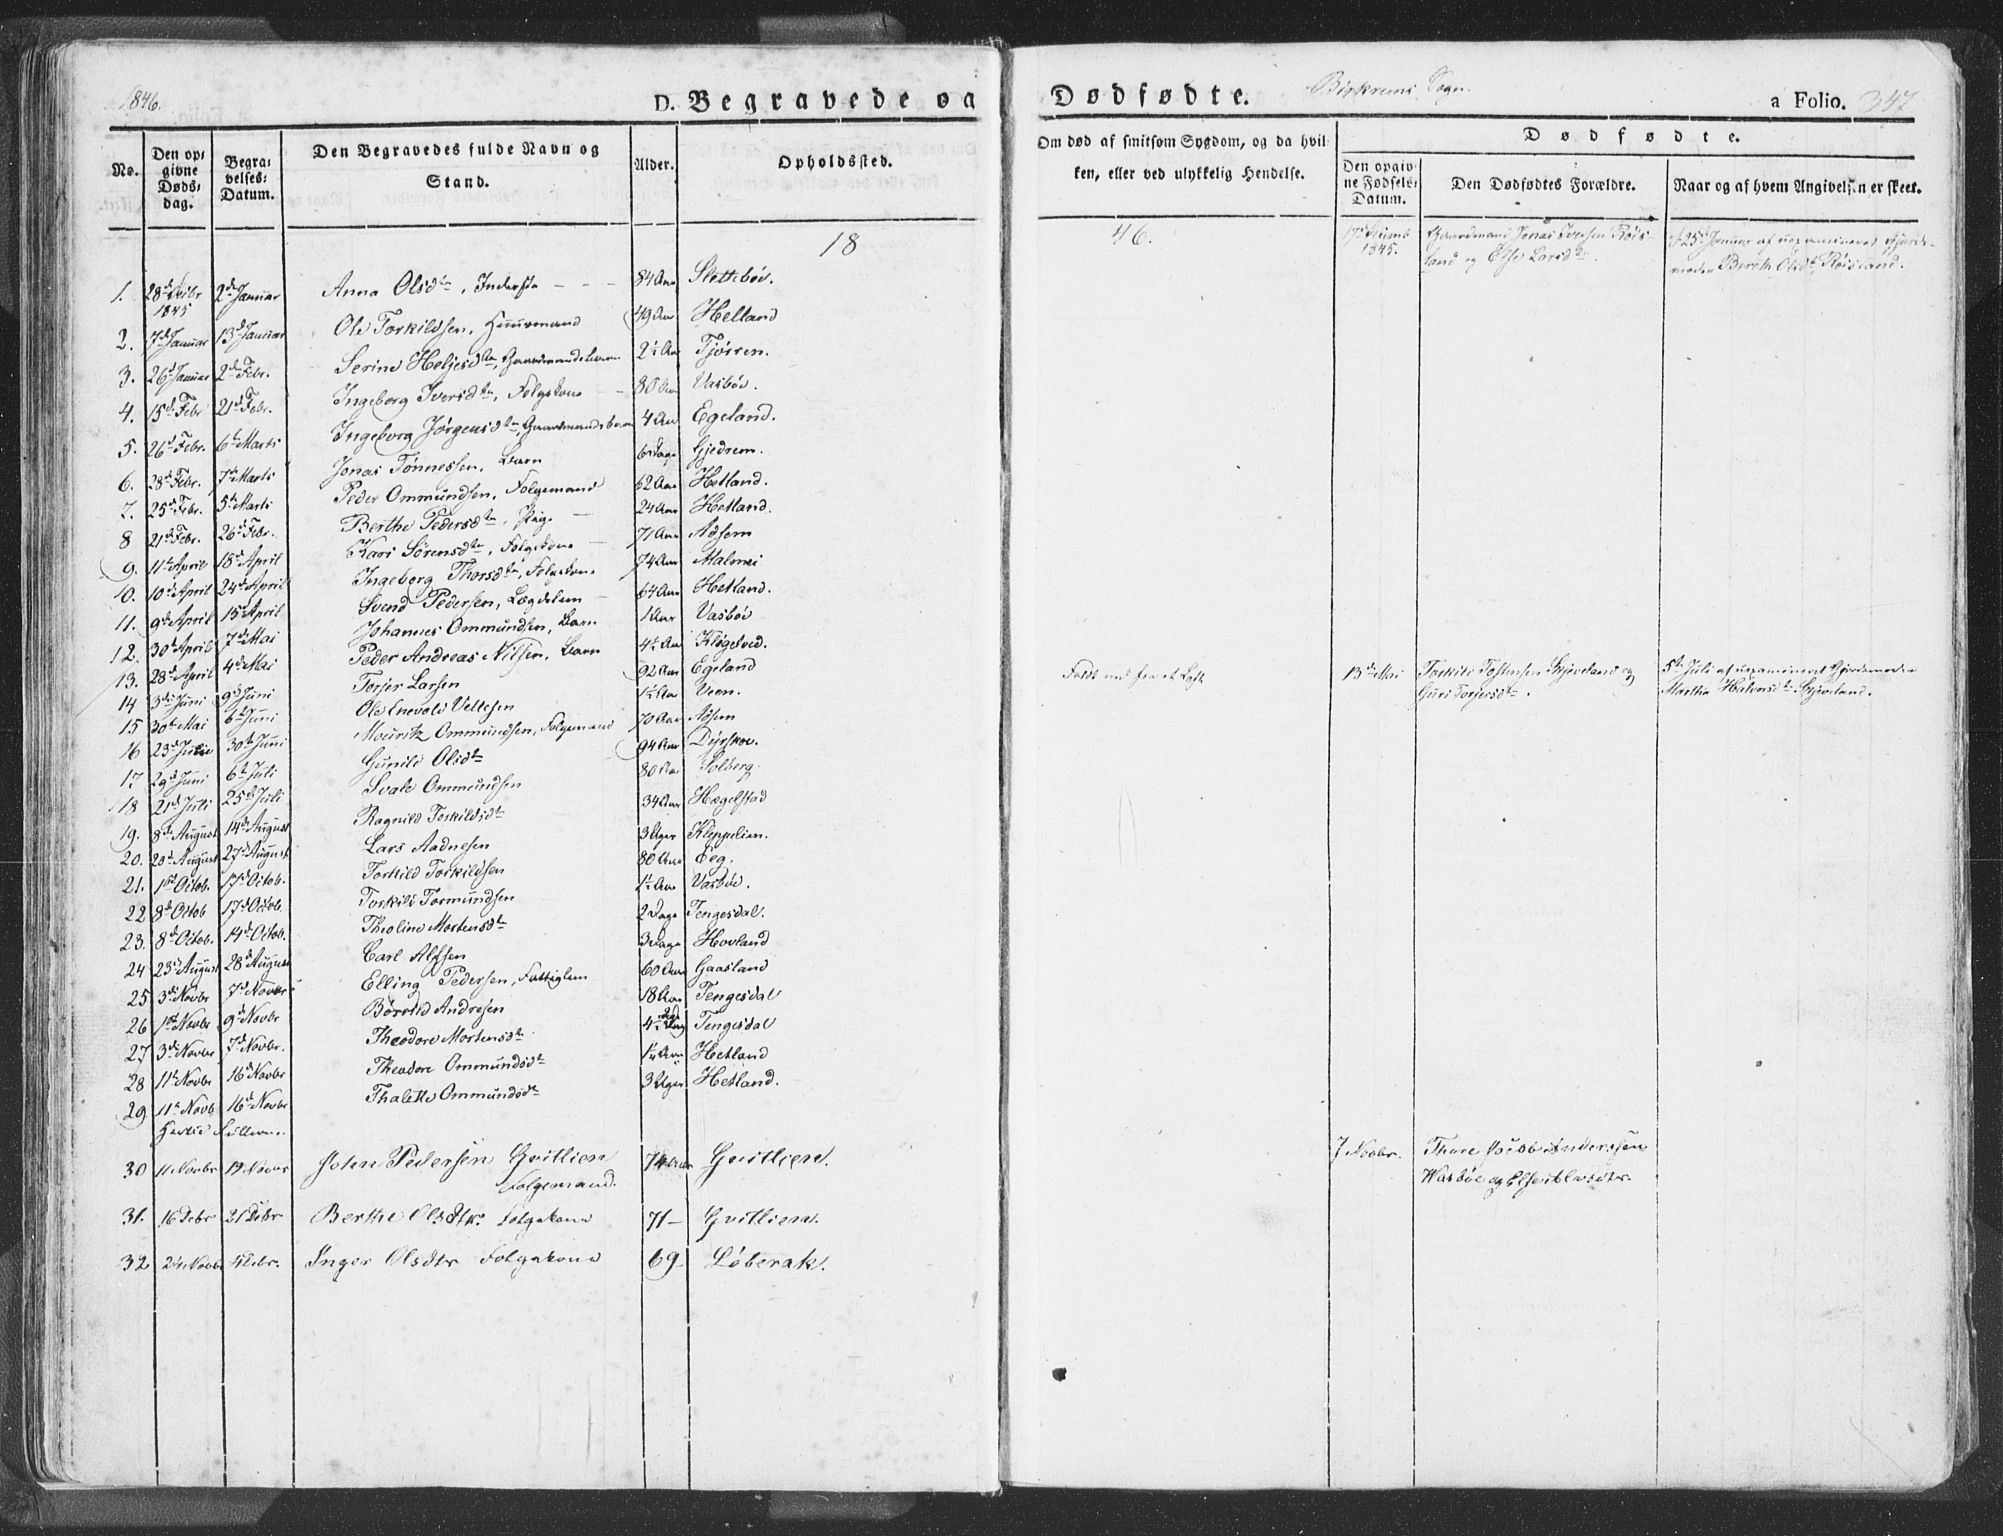 1846.
D. Begravede og
No.
Den op-
givne
Døds-
dag.
Begra-
velses-
Datum.
Den Begravedes fulde Navn og
Stand.
Alder.
Opholdssted.
18
1. 28de Decbr 1845 2de Januar Anna Olsdtr, Inderste 84 Aar Slettebøv.
2. 7de Januar 13de Januar Ole Torkildsen, Huusmand 49 Aar Helland
3. 26de Januar 2de Febr. Serine Heljesdtr, Gaardmandsbarn 2½ Aar Tjørren.
4. 15de Febr 21de Febr. Ingeborg Iversdtr, Folgekone 80 Aar Vasbøv.
5. 26de Febr. 6te Marts Ingeborg Jørgensdtr, Gaardmandsbarn 4 Aar Egeland.
6. 28de Febr. 7de Marts Jonas Tønnessen, Barn 6 Dage Gjedrem.
7. 25de Febr. 5te Marts Peder Ommundsen, Folgemand 62 Aar Hetland.
8 21de Febr. 26de Febr. Berthe Pedersdtr, Pige 24 Aar Hetland.
9. 11te April 18de April Kari Sørensdtr, Folgekone 71 Aar Adsem
10. 10de April 24de April Ingeborg Thorsdtr, Folgekone 74 Aar Malmei
11. 9de April 15de April Svend Pedersen, Lægdslem 64 Aar Hetland.
12. 30de April 7de Mai Johannes Ommundsen, Barn 1 Aar Vasbøv
13. 28de April 4de Mai Peder Andreas Nilsen, Barn 4½ Aar Kløgetved.
14 3die Juni 9de Juni Torger Larsen 92 Aar Egeland
15 30te Mai 6te Juni Ole Enevold Vellesen 1½ Aar Veen.
16 23de Junie 30te Juni Mouritz Ommundsen, Folgemand 70 Aar Adsem
17. 29de Juni 6te Juli Gunild Olsdtr 94 Aar Dyrskov.
18 21de Juli 25de Juli Svale Ommundsen 80 Aar Solberg.
19. 8de August 14de August Ragnild Torkildsdtr 34 Aar Hægelstad
20. 20de August 27de August Lars Aadnesen 3 Uger Kleppelien.
21. 1ste Octob. 17de Octob. Torkild Torkildsen 80 Aar Eeg.
22 8de Octob 17de Octob. Torkild Tormundsen 1½ Aar Vasbøe.
23. 8de Octob. 14de Octob. Theoline Mortensdtr 2 Dage Tengesdal.
24 23de August 28de August Carl Alfsen 3 Dage Hovland
25 3die Novbr 7de Novbr Elling Pedersen, Fattiglem 60 Aar Gaasland
26 1ste Novbr 9de Novbr Børrild Andresen 18 Aar Tengesdal
27 3die Novbr 7de Novbr. Theodore Mortensdtr 4½ Tengesdal
28 11te Novbr 16de Novbr Theodore Ommundsdtr Hetland
29 11te Novb 16de Novbr Thalette Ommundsdtr 3 Uger Hetland.
30 11 Novbr 19 Novbr John Pedersen Gvitlien 74 Aar Gvitlien.
Folgemand.
31. 16 Debr 21 Debr Berthe Olsdtr. Folgekone 71 — Gvitlien.
32 24 Novbr 4 Debr. Inger Olsdtr Folgekone 69 Løberak.
Dødfødte.
Birkrems Sogn.
a Folio. 347
Om død af smitsom Sygdom, og da hvil-
ken, eller ved ulykkelig Hendelse.
Dødfødte.
Den opgiv-
ne Fødsels-
Datum.
Den Dødfødtes Forældre.
Naar og af hvem Angivelsen er skeet.
46.
17de Decmb
1845.
Gaardmand Jonas Iversen Røis-
land og Else Larsdtr.
25de Januar af uexamineret Gjorde-
moder Berthe Olsdtr Røisland.
Faldt ned fra et Loft
13de Mai
Torkild Tostensen Skjeveland og
Guri Torgersdtr.
5te Juli af uexamineret Gjordemoder
Martha Halvorsdtr Skjeveland.
7 Novbr.
Thore Jacob Anderssen
Wasbøe og Else Alvsdtr.